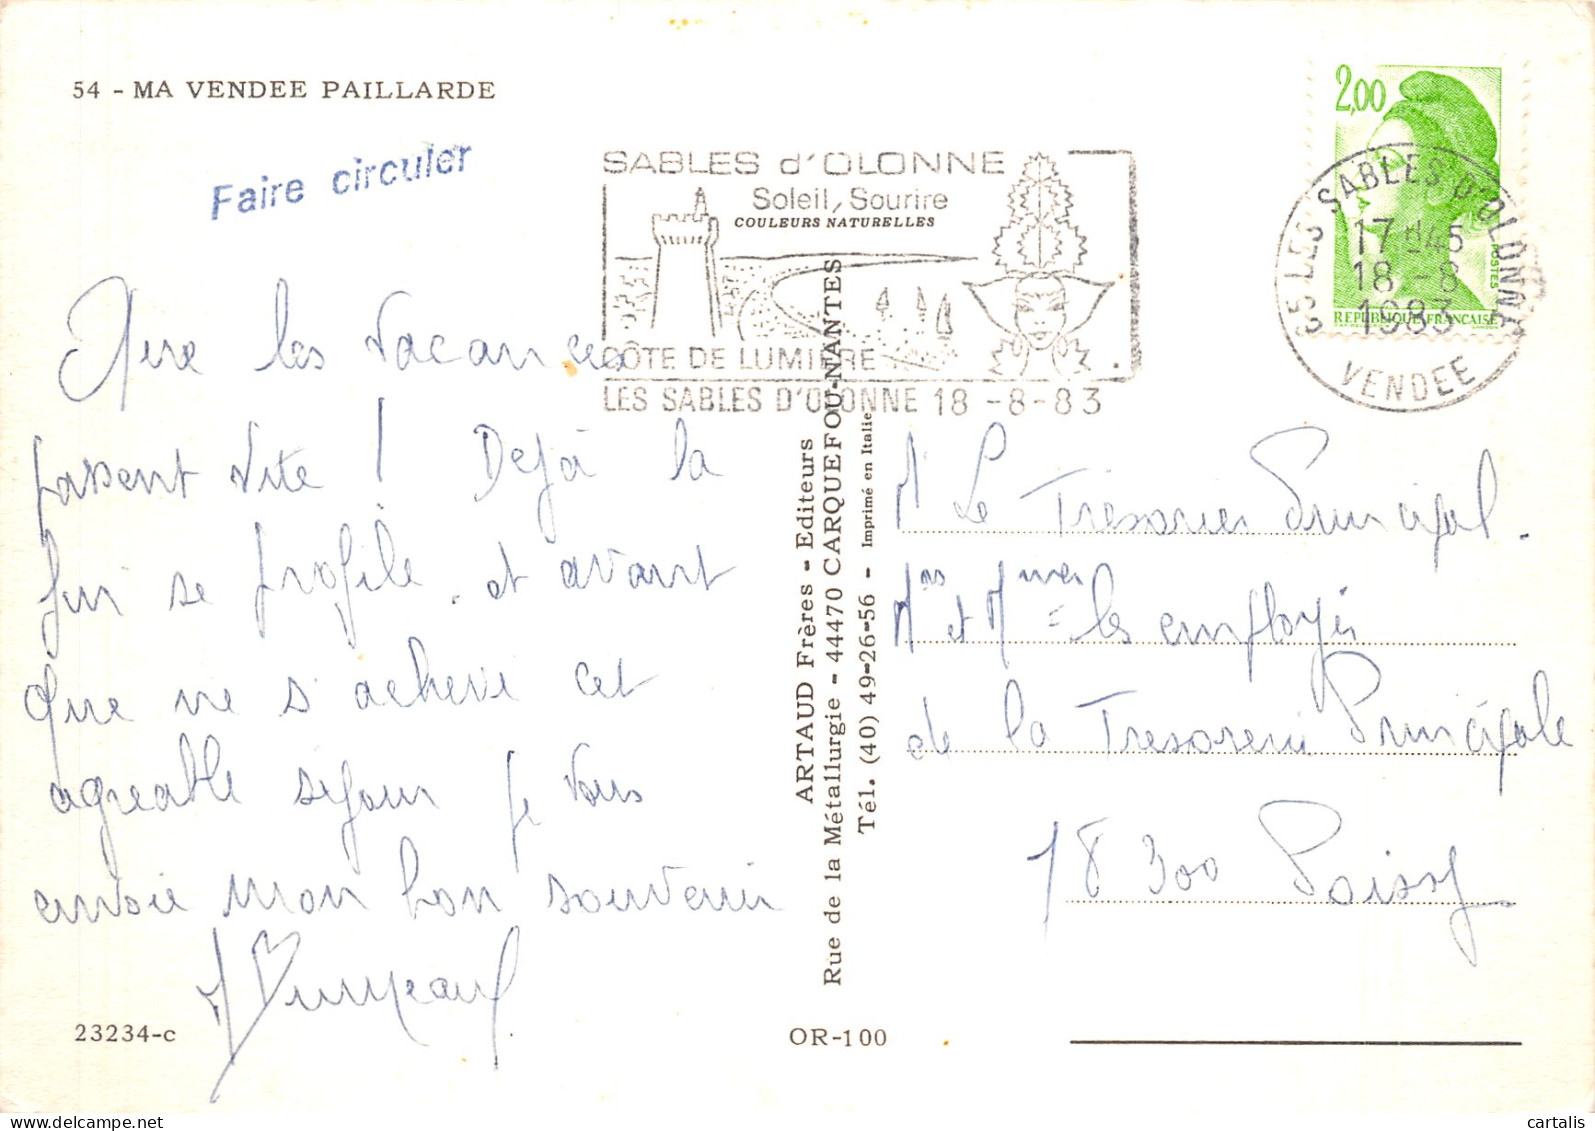 54 - MA VENDEE PAILLARDE
Faire circuler
SABLES d'OLONNE
Soleil, Sourire
COULEURS NATURELLES
CÔTE DE LUMIÈRE
LES SABLES D'OLONNE 18-8-83
2,00
POSTES
REPUBLIQUE FRANCAISE
LES SABLES D'OLONNE
17 H45
18-8
1983
VENDEE
Que les vacances
passent vite ! Déjà la
fin se profile. et avant
que ne s'achève cet
agréable séjour je vous
envoie mon bon souvenir
ARTAUD Frères - Editeurs
Rue de la Métallurgie - 44470 CARQUEFOU-NANTES
Tél. (40) 49-26-56 - Imprimé en Italie
Mr Le Trésorier Principal.
Mrs et Mmes les employés
de la Tresorerie Principale
78300 Poissy
23234-c
OR-100
cartalis